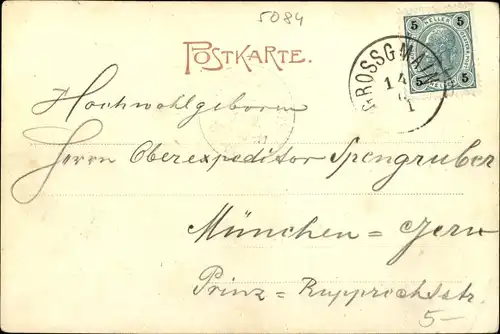 5084
POSTKARTE.
5 HELLER 5
5 HELLER 5
GROSSGMAIN
14
1
Hochwohlgeboren
Herrn Oberexpeditor Spengruber
München = Gern
Prinz = Rupprechtstr.
5-